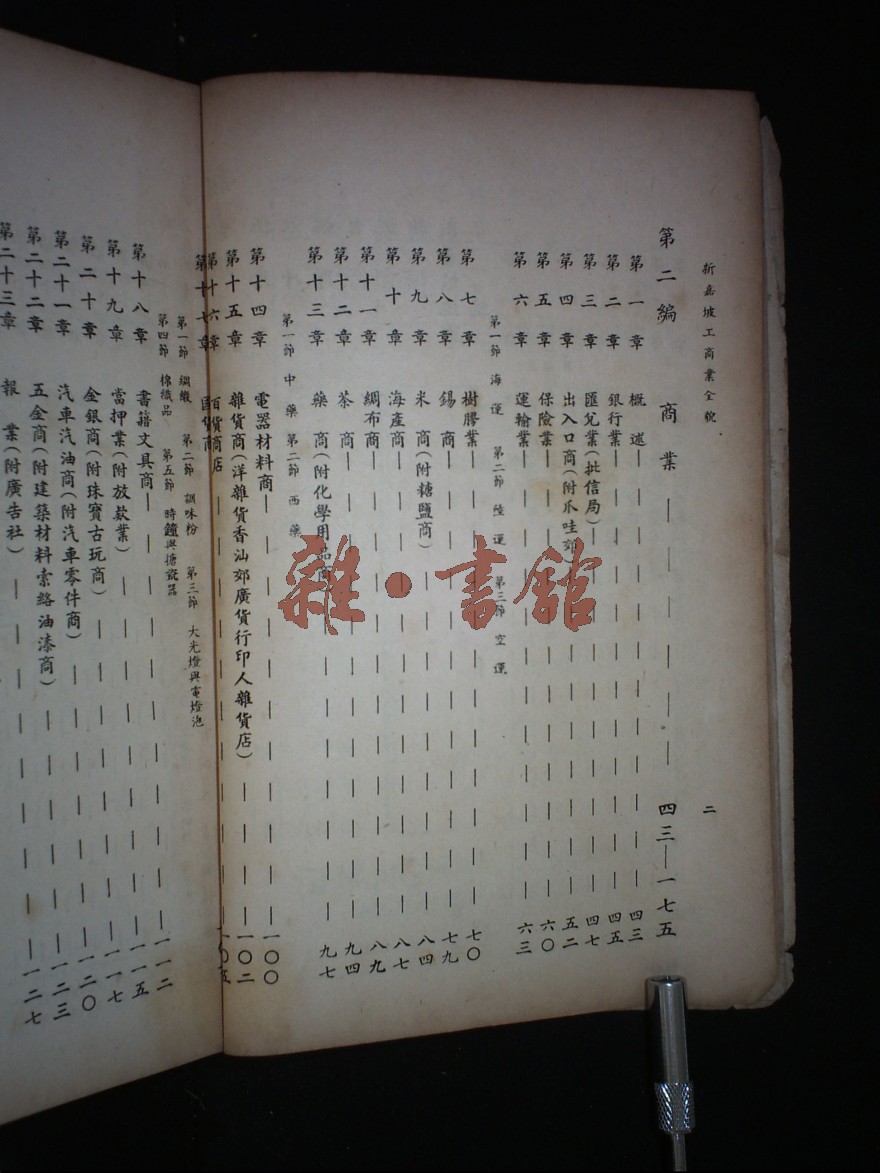 新嘉坡工商業全貌
二
第二編 商業——————四三—一七五
第一章 概述——————四三
第二章 銀行業——————四五
第三章 匯兌業(批信局)——————四七
第四章 出入口商(附爪哇郊)——————五二
第五章 保險業——————六〇
第六章 運輸業——————六三
第一節 海運 第二節 陸運 第三節 空運
第七章 樹膠業——————七〇
第八章 錫商——————七九
第九章 米商(附糖鹽商)——————八四
第十章 海產商——————八七
第十一章 綢布商——————八九
第十二章 茶商——————九四
第十三章 藥商(附化學用品商)——————九七
第一節 中藥 第二節 西藥
第十四章 電器材料商——————一〇〇
第十五章 雜貨商(洋雜貨香汕郊廣貨行印人雜貨店)——————一〇二
第十六章 百貨商店——————一〇五
第十七章 國貨商
第一節 綢緞 第二節 調味粉 第三節 大光燈與電燈泡
第四節 棉織品 第五節 時鐘與搪瓷器
第十八章 書籍文具商——————一一二
第十九章 當押業(附放款業)——————一一五
第二十章 金銀商(附珠寶古玩商)——————一一七
第二十一章 汽車汽油商(附汽車零件商)——————一二〇
第二十二章 五金商(附建築材料索絡油漆商)——————一二三
第二十三章 報業(附廣告社)——————一二七
雜·書館